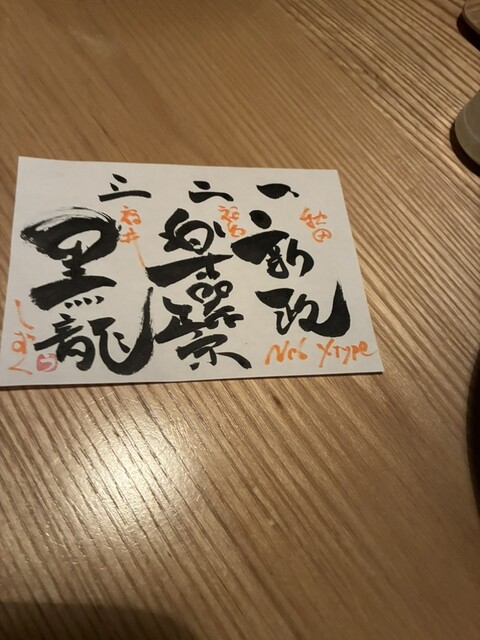 一、
秋田
新政
No6 X-Type
二、
福島
楽器正宗
三
福井
黒龍
しずく